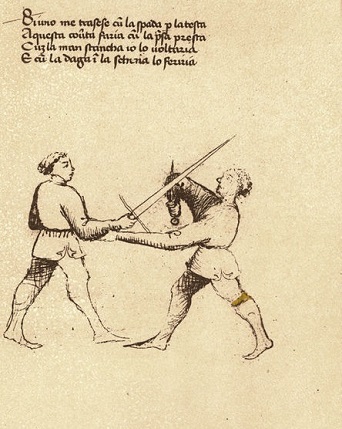 Si uno me trasese cũ la spada p la testa
A questa cov̄ta faria cũ la p̃sa presta
Cũ la man stancha io lo voltaria
E cũ la daga ĩ la schena lo feriria